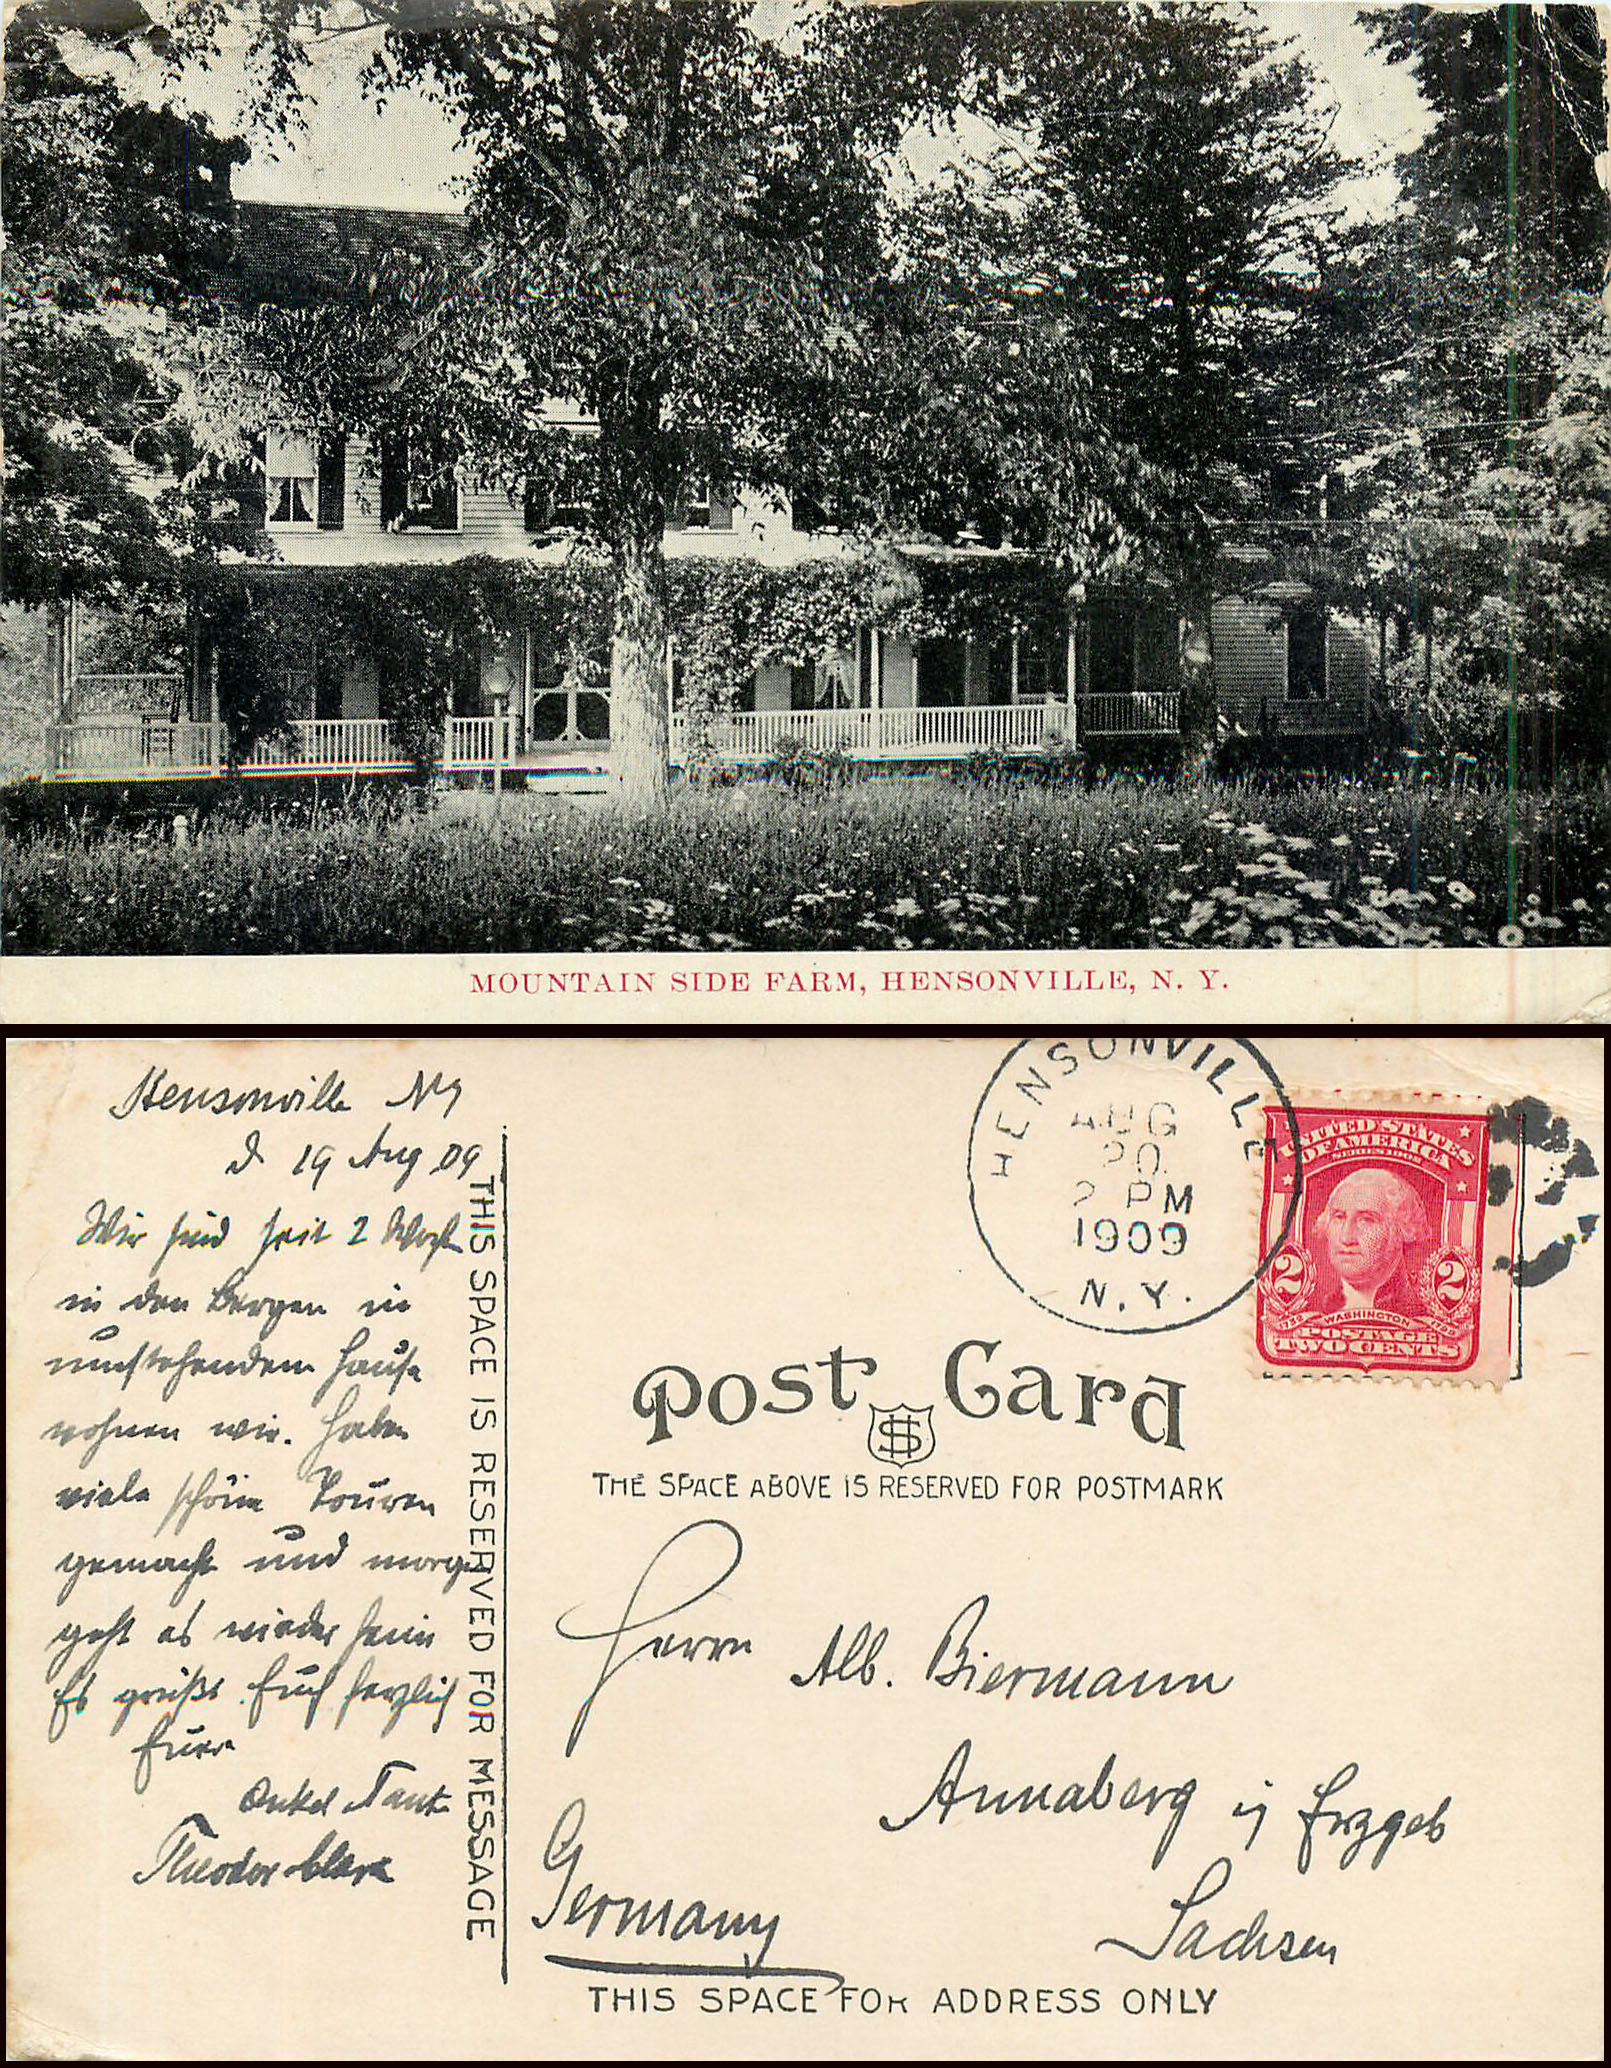 MOUNTAIN SIDE FARM, HENSONVILLE, N. Y.
Hensonville NY
d. 19 Aug 09
Wir sind seit 2 Woch
in den Bergen in
umstehendem Hause
wohnen wir. Haben
viele schöne Touren
gemacht und morgen
geht es wieder heim
Es grüßt Euch herzlich
Eure
Onkel Tante
Theodor Clara
THIS SPACE IS RESERVED FOR MESSAGE
HENSONVILLE
AUG
20
2 PM
1909
N.Y.
UNITED STATES
OF AMERICA
SERIES 1902
2 2
1732 WASHINGTON 1799
POSTAGE
TWO CENTS
Post Card
THE SPACE ABOVE IS RESERVED FOR POSTMARK
Herrn
Alb. Biermann
Annaberg i/ Erzgeb
Sachsen
Germany
THIS SPACE FOR ADDRESS ONLY